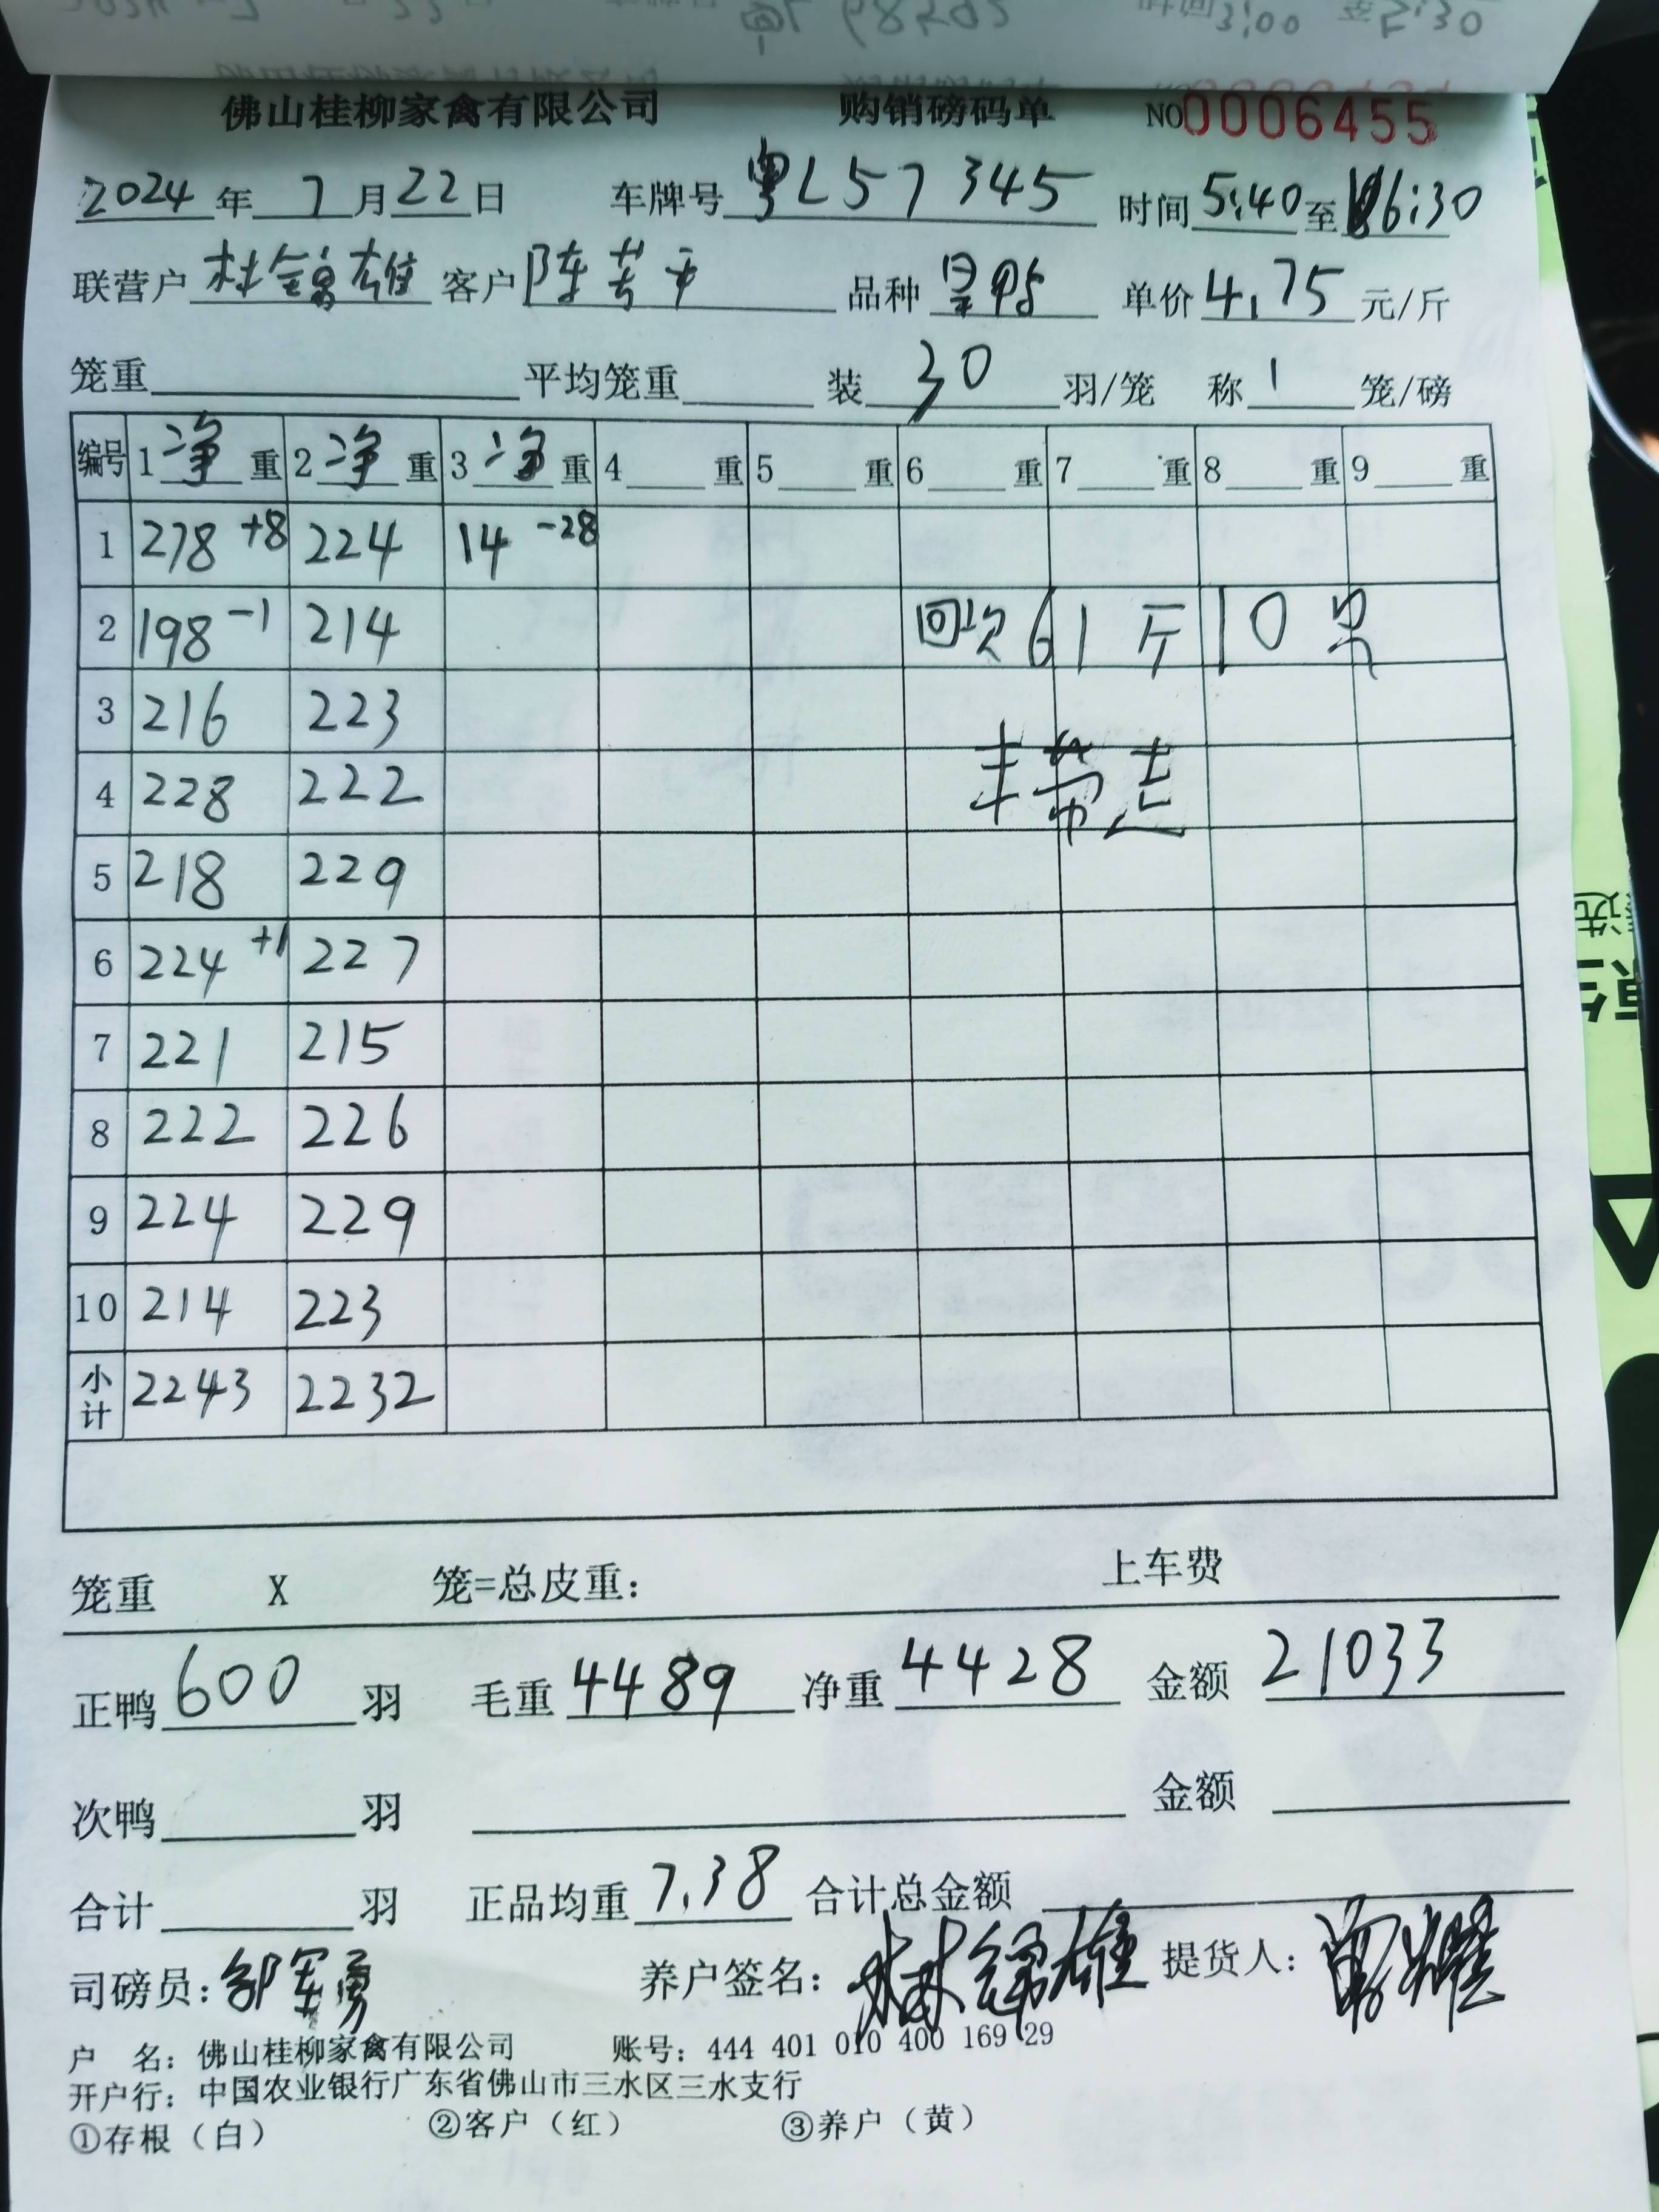 佛山桂柳家禽有限公司 购销磅码单 NO 0006455
2024年7月22日 车牌号粤L57345 时间5:40至6:30
联营户林锦雄 客户陈芳平 品种呈鸭 单价4.75元/斤
笼重 平均笼重 装30羽/笼 称1笼/磅
编号 1净重 2净重 3净重 4重 5重 6重 7重 8重 9重
1 278+8 224 14-28
2 198-1 214 回次61斤10只
3 216 223
4 228 222
5 218 229
6 224+1 227
7 221 215
8 222 226
9 224 229
10 214 223
小计 2243 2232
笼重 X 笼=总皮重: 上车费
正鸭600羽 毛重4489 净重4428 金额21033
次鸭 羽 金额
合计 羽 正品均重7.38 合计总金额
司磅员:邹军勇 养户签名:林锦雄 提货人:
户 名:佛山桂柳家禽有限公司 账号:444 401 010 400 169 29
开户行:中国农业银行广东省佛山市三水区三水支行
①存根(白) ②客户(红) ③养户(黄)